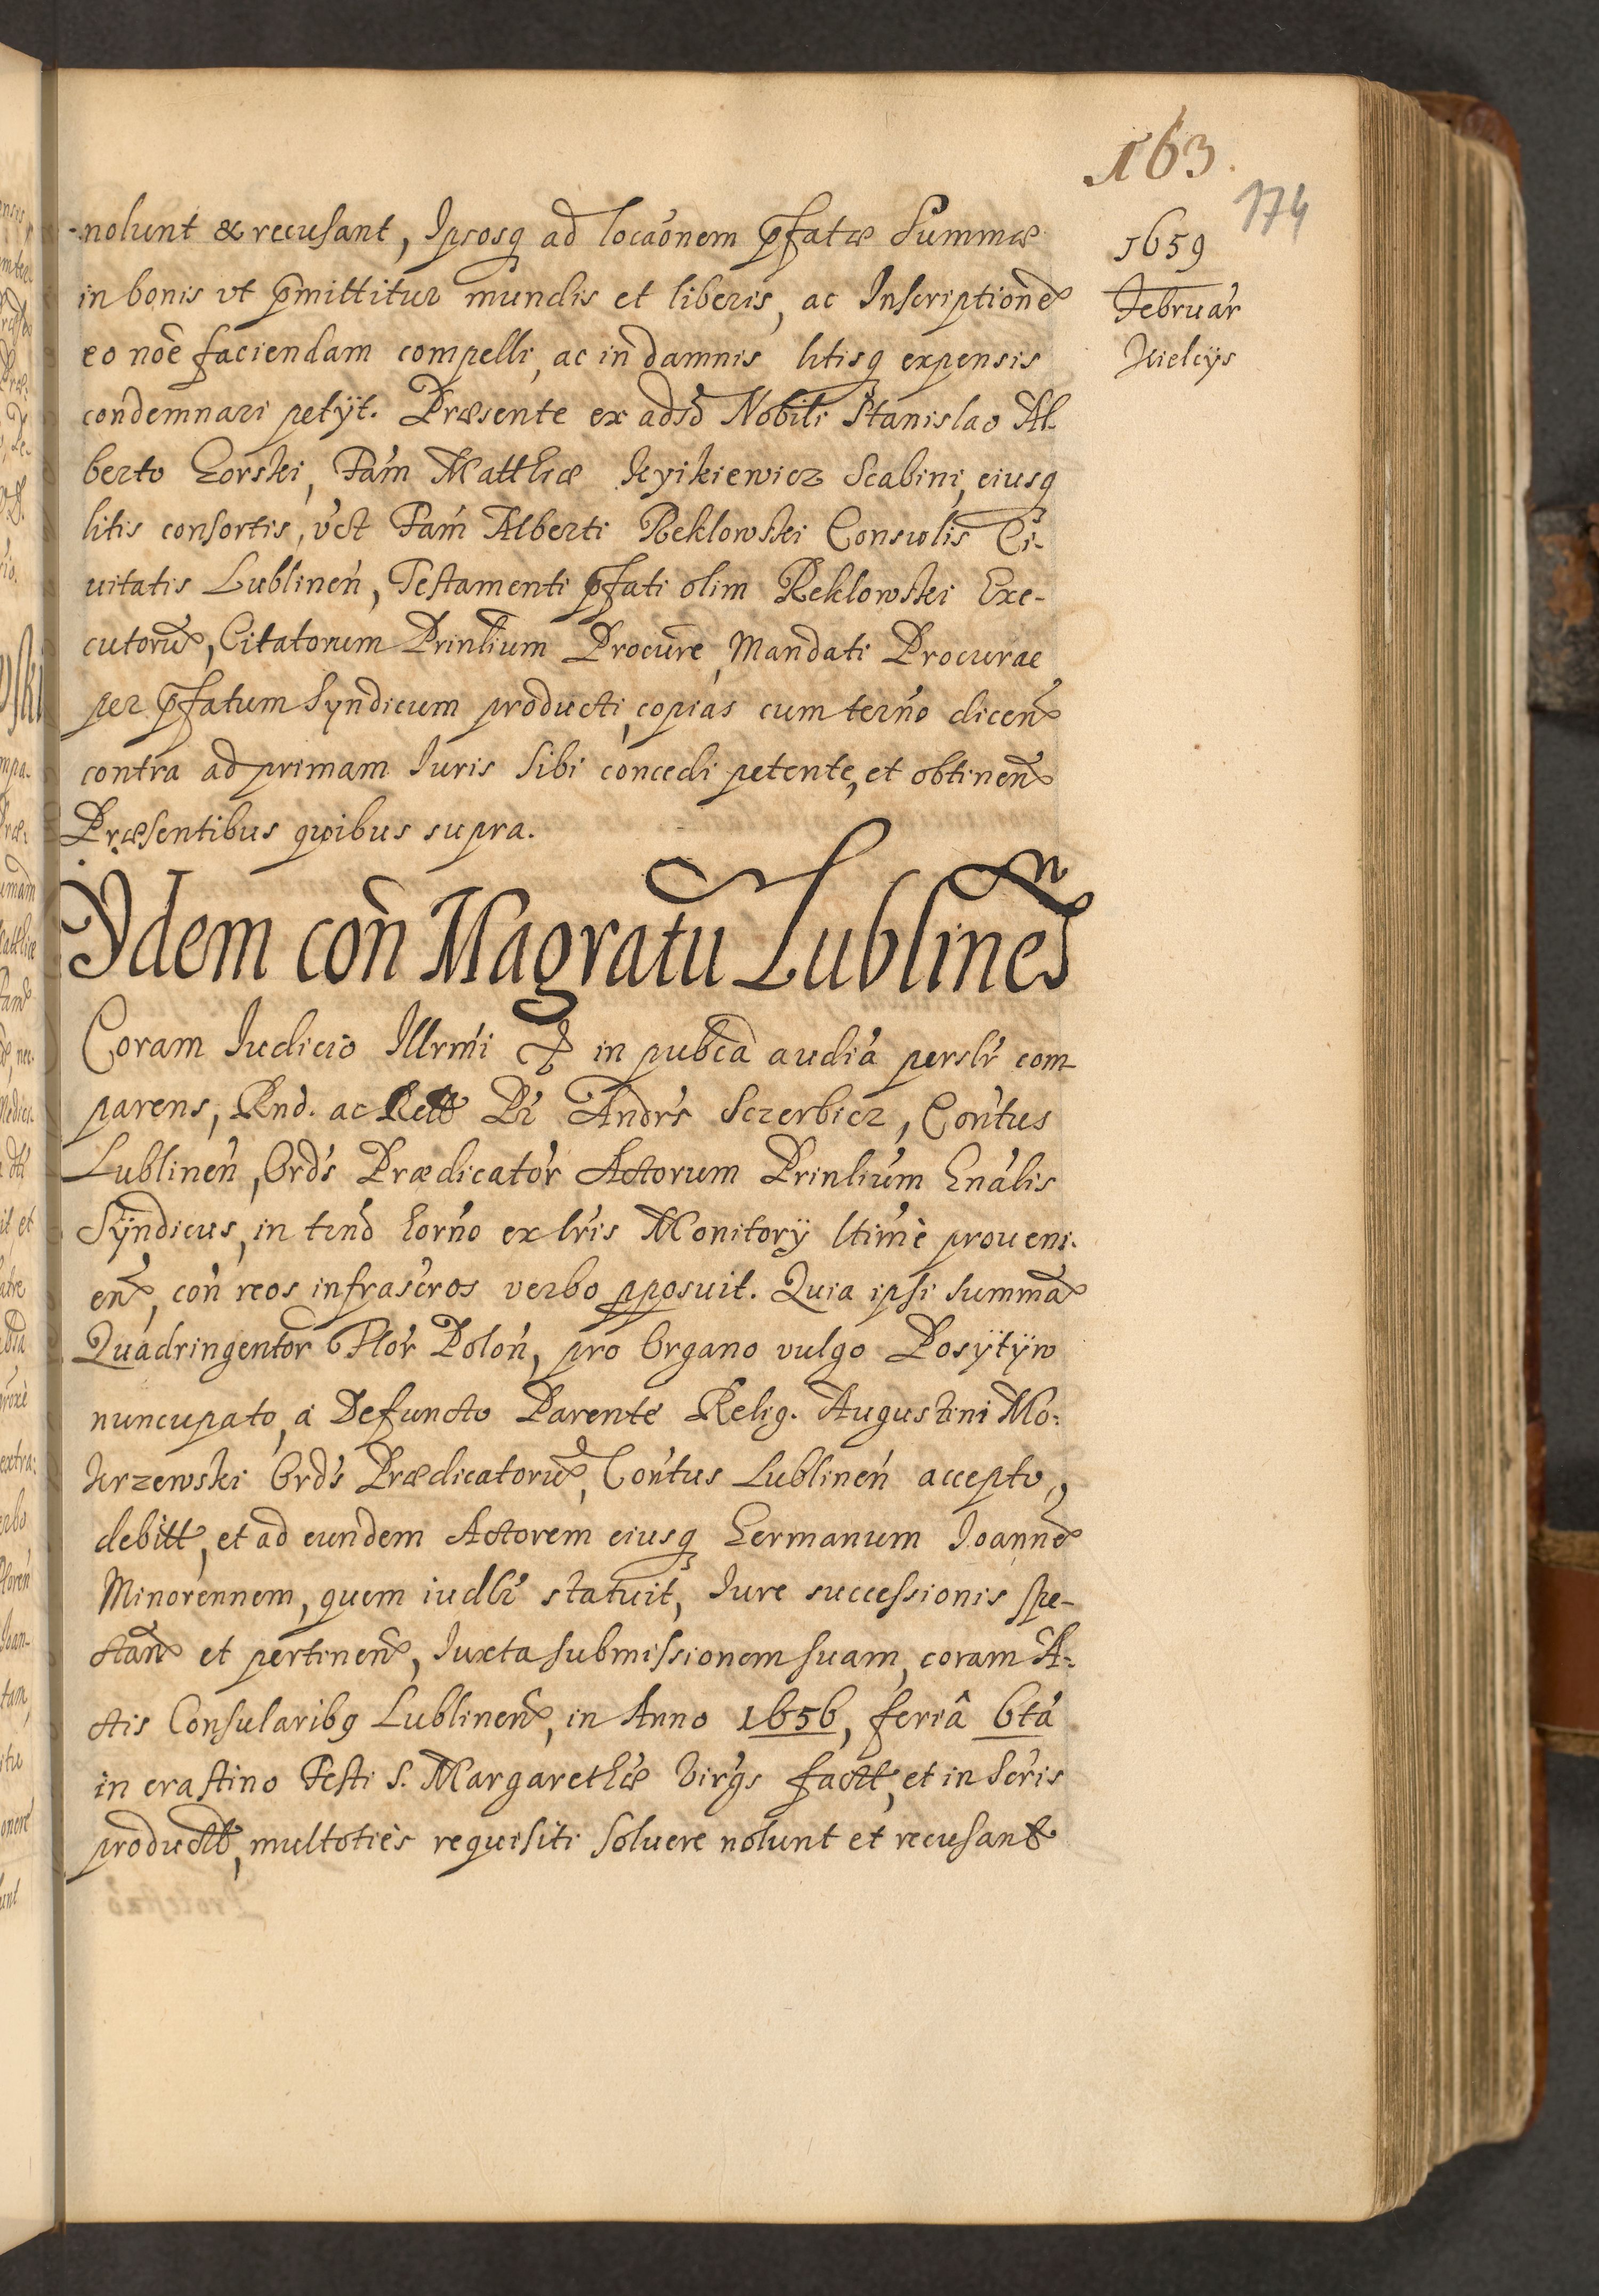 163.
174
1659
Februar
Kielcijs
nolunt & recusant, Ipsosq ad locaönem pfatæ Summæ
in bonis vt pmittitur mundis et liberis, ac Inscriptione
eo noe faciendam compelli, ac in damnis litisq expensis
condemnari petijt. Præsente ex adsd Nobili Stanislao Al-
berto Gorski, Fam Matthiæ Kyikiewicz Scabini, eiusq
litis consortis, vct Fam Alberti Reklowski Consulis Ci-
uitatis Lublinen, Testamenti pfati olim Reklowski Exe-
cutoru, Citatorum Prinlium Procure, Mandati Procurae
per pfatum Syndicum producti, copias cum terno dicen
contra ad primam Iuris sibi concedi petente, et obtinen
Præsentibus quibus supra.
Ydem con Magratu Lublinen
Coram Iudicio Illrmi & in pubca audia perslr com-
parens, Rnd. ac Rell Pr Andrs Sczerbicz, Contus
Lublinen, Ords Prædicator Actorum Prinlium Gnalis
Syndicus, in tend Gorno ex lris Monitorij ltime proueni-
en, con reos infrascros verbo pposuit. Quia ipsi summa
Quadringentor Flor Polon, pro Organo vulgo Posÿtÿw
nuncupato, a Defuncto Parente Relig. Augustini Mo-
krzewski Ords Prædicatoru, Contus Lublinen accepto,
debitt, et ad eundem Actorem eiusq Germanum Joanne
Minorennem, quem iudlr statuit, Iure successionis spe-
ctan et pertinen, Iuxta submissionem suam, coram A-
ctis Consularibq Lublinen, in Anno 1656, feriâ 6ta
in crastino Festi S. Margarethæ Virgs factt, et in scris
productt, multoties requisiti soluere nolunt et recusant